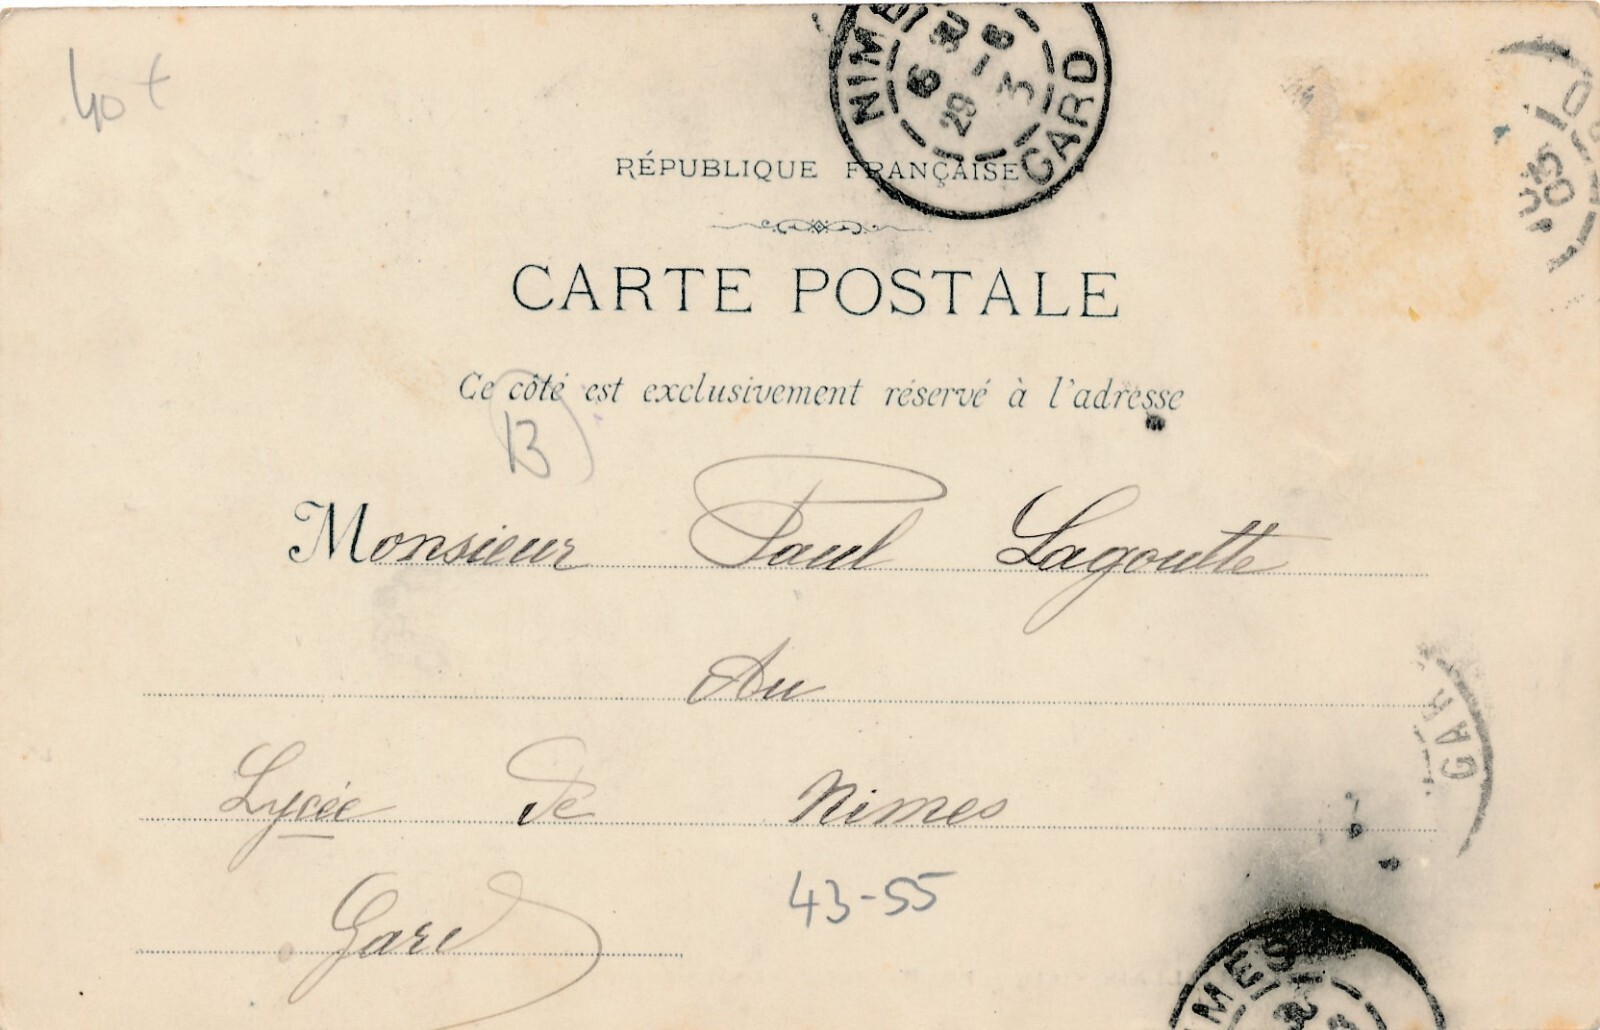 40 f
NIMES
6 30
29 -3
GARD
RÉPUBLIQUE FRANÇAISE
CARTE POSTALE
Ce côté est exclusivement réservé à l'adresse
13
Monsieur Paul Lagoutte
Au
Lycée de Nimes
Gard
43-55
GAR
IMES